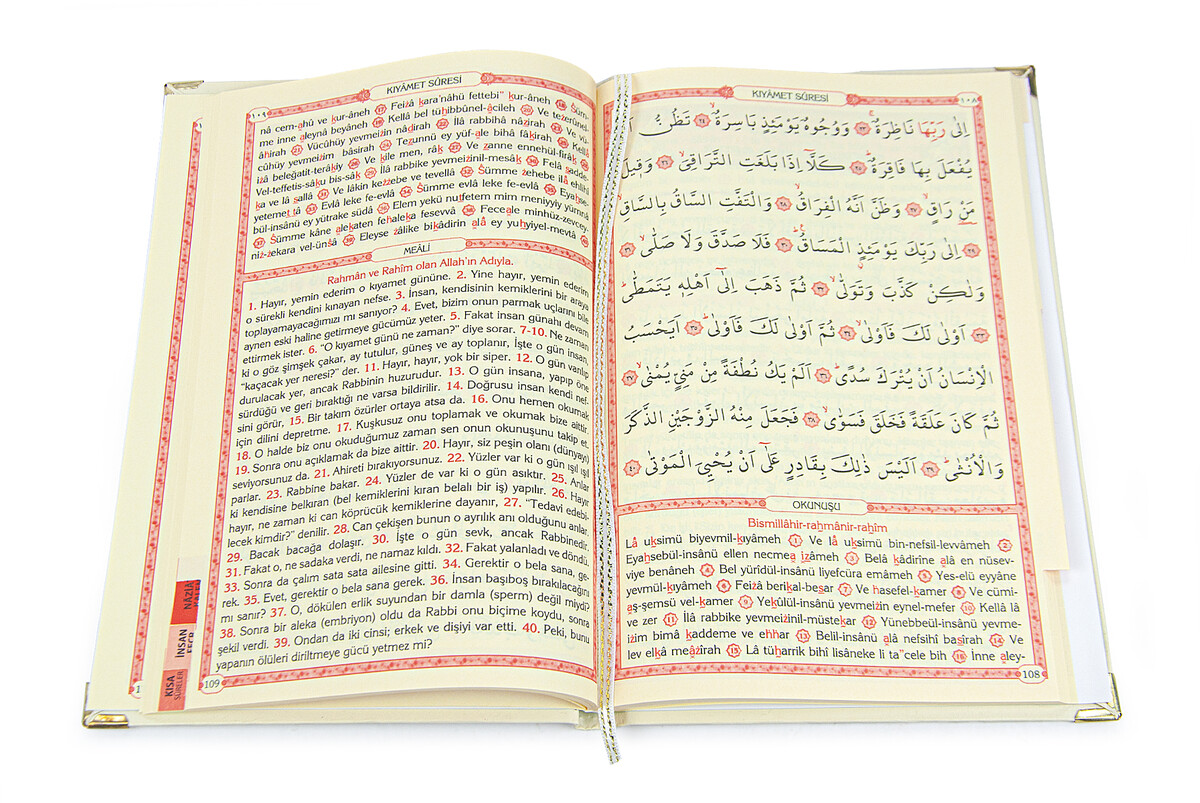 KIYÂMET SÛRESİ
١٠٨
اِلٰى رَبِّهَا نَاظِرَةٌۚ ﴿٢٣﴾ وَوُجُوهٌ يَوْمَئِذٍ بَاسِرَةٌۙ ﴿٢٤﴾ تَظُنُّ اَنْ
يُفْعَلَ بِهَا فَاقِرَةٌۜ ﴿٢٥﴾ كَلَّٓا اِذَا بَلَغَتِ التَّرَاقِيَۙ ﴿٢٦﴾ وَقِيلَ
مَنْ رَاقٍۙ ﴿٢٧﴾ وَظَنَّ اَنَّهُ الْفِرَاقُۙ ﴿٢٨﴾ وَالْتَفَّتِ السَّاقُ بِالسَّاقِۙ
﴿٢٩﴾ اِلٰى رَبِّكَ يَوْمَئِذٍ الْمَسَاقُۜ۟ ﴿٣٠﴾ فَلَا صَدَّقَ وَلَا صَلّٰىۙ ﴿٣١﴾
وَلٰكِنْ كَذَّبَ وَتَوَلّٰىۙ ﴿٣٢﴾ ثُمَّ ذَهَبَ اِلٰٓى اَهْلِه۪ يَتَمَطّٰىۜ
﴿٣٣﴾ اَوْلٰى لَكَ فَاَوْلٰىۙ ﴿٣٤﴾ ثُمَّ اَوْلٰى لَكَ فَاَوْلٰىۜ ﴿٣٥﴾ اَيَحْسَبُ
الْاِنْسَانُ اَنْ يُتْرَكَ سُدًىۜ ﴿٣٦﴾ اَلَمْ يَكُ نُطْفَةً مِنْ مَنِيٍّ يُمْنٰىۙ ﴿٣٧﴾
ثُمَّ كَانَ عَلَقَةً فَخَلَقَ فَسَوّٰىۙ ﴿٣٨﴾ فَجَعَلَ مِنْهُ الزَّوْجَيْنِ الذَّكَرَ
وَالْاُنْثٰىۜ ﴿٣٩﴾ اَلَيْسَ ذٰلِكَ بِقَادِرٍ عَلٰٓى اَنْ يُحْيِيَ الْمَوْتٰى ﴿٤٠﴾
OKUNUŞU
Bismillâhir-rahmânir-rahîm
Lâ uksimü biyevmil-kıyâmeh 1 Ve lâ uksimü bin-nefsil-levvâmeh 2
Eyahsebül-insânü ellen necmea izâmeh 3 Belâ kâdirîne alâ en nüsev-
viye benâneh 4 Bel yürîdül-insânü liyefcüra emâmeh 5 Yes-elü eyyâne
yevmül-kıyâmeh 6 Feizâ berikal-besar 7 Ve hasefel-kamer 8 Ve cümi-
aş-şemsü vel-kamer 9 Yekûlül-insânü yevmeizin eynel-mefer 10 Kellâ lâ
ve zer 11 İlâ rabbike yevmeizinil-müstekar 12 Yünebbeül-insânü yevme-
izim bimâ kaddeme ve ehhar 13 Belil-insânü alâ nefsihî basîrah 14 Ve
lev elkâ meâzîrah 15 Lâ tüharrik bihî lisâneke li ta"cele bih 16 İnne aley-
108
KIYÂMET SÛRESİ
١٠٩
nâ cem-ahû ve kur-âneh 17 Feizâ kara'nâhü fettebi" kur-âneh 18 Süm-
me inne aleynâ beyâneh 19 Kellâ bel tühibbûnel-âcileh 20 Ve tezerûnel-
âhirah 21 Vücûhüy yevmeizin nâdirah 22 İlâ rabbihâ nâzirah 23 Ve vü-
cûhüy yevmeizim bâsirah 24 Tezunnü ey yüf-ale bihâ fâkirah 25 Kellâ
izâ beleğatit-terâkıy 26 Ve kîle men, râk 27 Ve zanne ennehül-firâk 28
Vel-teffetis-sâku bis-sâk 29 İlâ rabbike yevmeizinil-mesâk 30 Felâ sadde-
ka ve lâ sallâ 31 Ve lâkin kezzebe ve tevellâ 32 Sümme zehebe ilâ ehlihî
yetemettâ 33 Evlâ leke fe-evlâ 34 Sümme evlâ leke fe-evlâ 35 Eyahse-
bül-insânü ey yütrake südâ 36 Elem yekü nutfetem mim meniyyiy yümnâ
37 Sümme kâne alekaten fehaleka fesevvâ 38 Feceale minhüz-zevcey-
niz-zekara vel-ünsâ 39 Eleyse zâlike bikâdirin alâ ey yuhyiyel-mevtâ 40
MEÂLİ
Rahmân ve Rahîm olan Allah'ın Adıyla.
1. Hayır, yemin ederim o kıyamet gününe. 2. Yine hayır, yemin ederim
o sürekli kendini kınayan nefse. 3. İnsan, kendisinin kemiklerini bir araya
toplayamayacağımızı mı sanıyor? 4. Evet, bizim onun parmak uçlarını bile
aynen eski haline getirmeye gücümüz yeter. 5. Fakat insan günahı devam
ettirmek ister. 6. "O kıyamet günü ne zaman?" diye sorar. 7-10. Ne zaman
ki o göz şimşek çakar, ay tutulur, güneş ve ay toplanır, İşte o gün insan,
"kaçacak yer neresi?" der. 11. Hayır, hayır, yok bir siper. 12. O gün varılıp
durulacak yer, ancak Rabbinin huzurudur. 13. O gün insana, yapıp öne
sürdüğü ve geri bıraktığı ne varsa bildirilir. 14. Doğrusu insan kendi nef-
sini görür, 15. Bir takım özürler ortaya atsa da. 16. Onu hemen okumak
için dilini depretme. 17. Kuşkusuz onu toplamak ve okumak bize aittir.
18. O halde biz onu okuduğumuz zaman sen onun okunuşunu takip et.
19. Sonra onu açıklamak da bize aittir. 20. Hayır, siz peşin olanı (dünyayı)
seviyorsunuz da. 21. Ahireti bırakıyorsunuz. 22. Yüzler var ki o gün ışıl ışıl
parlar. 23. Rabbine bakar. 24. Yüzler de var ki o gün asıktır. 25. Anlar
ki kendisine belkıran (bel kemiklerini kıran belalı bir iş) yapılır. 26. Hayır
hayır, ne zaman ki can köprücük kemiklerine dayanır, 27. "Tedavi edebi-
lecek kimdir?" denilir. 28. Can çekişen bunun o ayrılık anı olduğunu anlar.
29. Bacak bacağa dolaşır. 30. İşte o gün sevk, ancak Rabbinedir.
31. Fakat o, ne sadaka verdi, ne namaz kıldı. 32. Fakat yalanladı ve döndü.
33. Sonra da çalım sata sata ailesine gitti. 34. Gerektir o bela sana, ge-
rek. 35. Evet, gerektir o bela sana gerek. 36. İnsan başıboş bırakılacağını
mı sanır? 37. O, dökülen erlik suyundan bir damla (sperm) değil miydi?
38. Sonra bir aleka (embriyon) oldu da Rabbi onu biçime koydu, sonra
şekil verdi. 39. Ondan da iki cinsi; erkek ve dişiyi var etti. 40. Peki, bunu
yapanın ölüleri diriltmeye gücü yetmez mi?
109
NÂZİÂT
İNSAN
FECR
KISA
SÛRELER